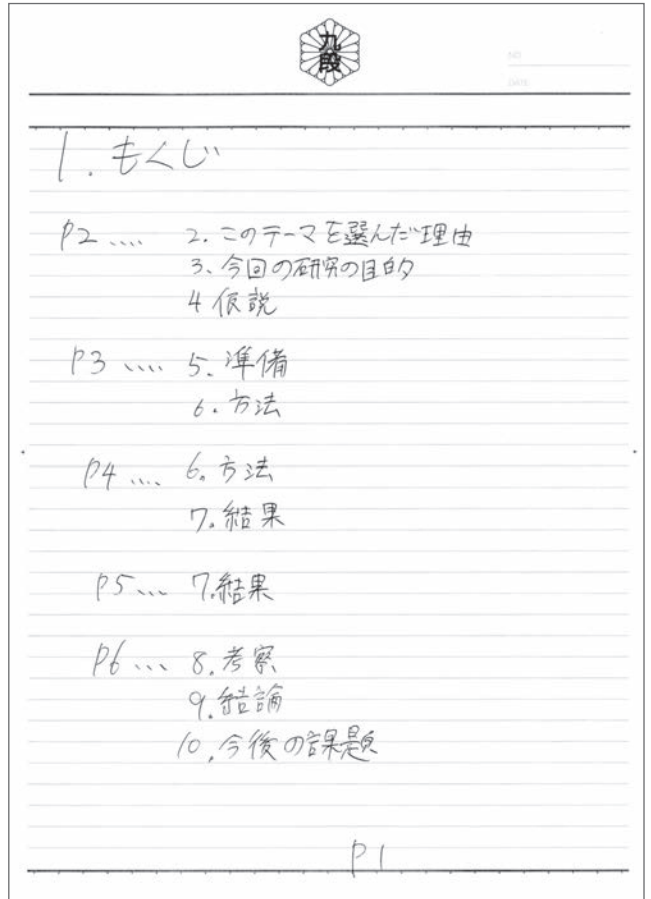 九段
NO.
DATE
1. もくじ
P2 .... 2. このテーマを選んだ理由
3. 今回の研究の目的
4 仮説
P3 .... 5. 準備
6. 方法
P4 .... 6. 方法
7. 結果
P5 ... 7. 結果
P6 ... 8. 考察
9. 結論
10. 今後の課題
P1